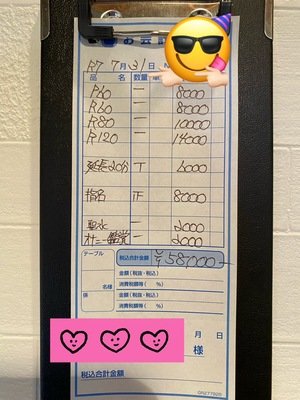 R7 7月31日
品名 数量
P60 一 8000
R60 一 8000
R80 一 10000
R120 一 14000
延長20分 T 6000
指名 正 8000
聖水 一 2000
オナニー鑑賞 一 2000
テーブル
税込合計金額 ¥58,000-
金額(税抜・税込)
名様 消費税額等( %)
係 金額(税抜・税込)
消費税額等( %)
月 日
様
税込合計金額